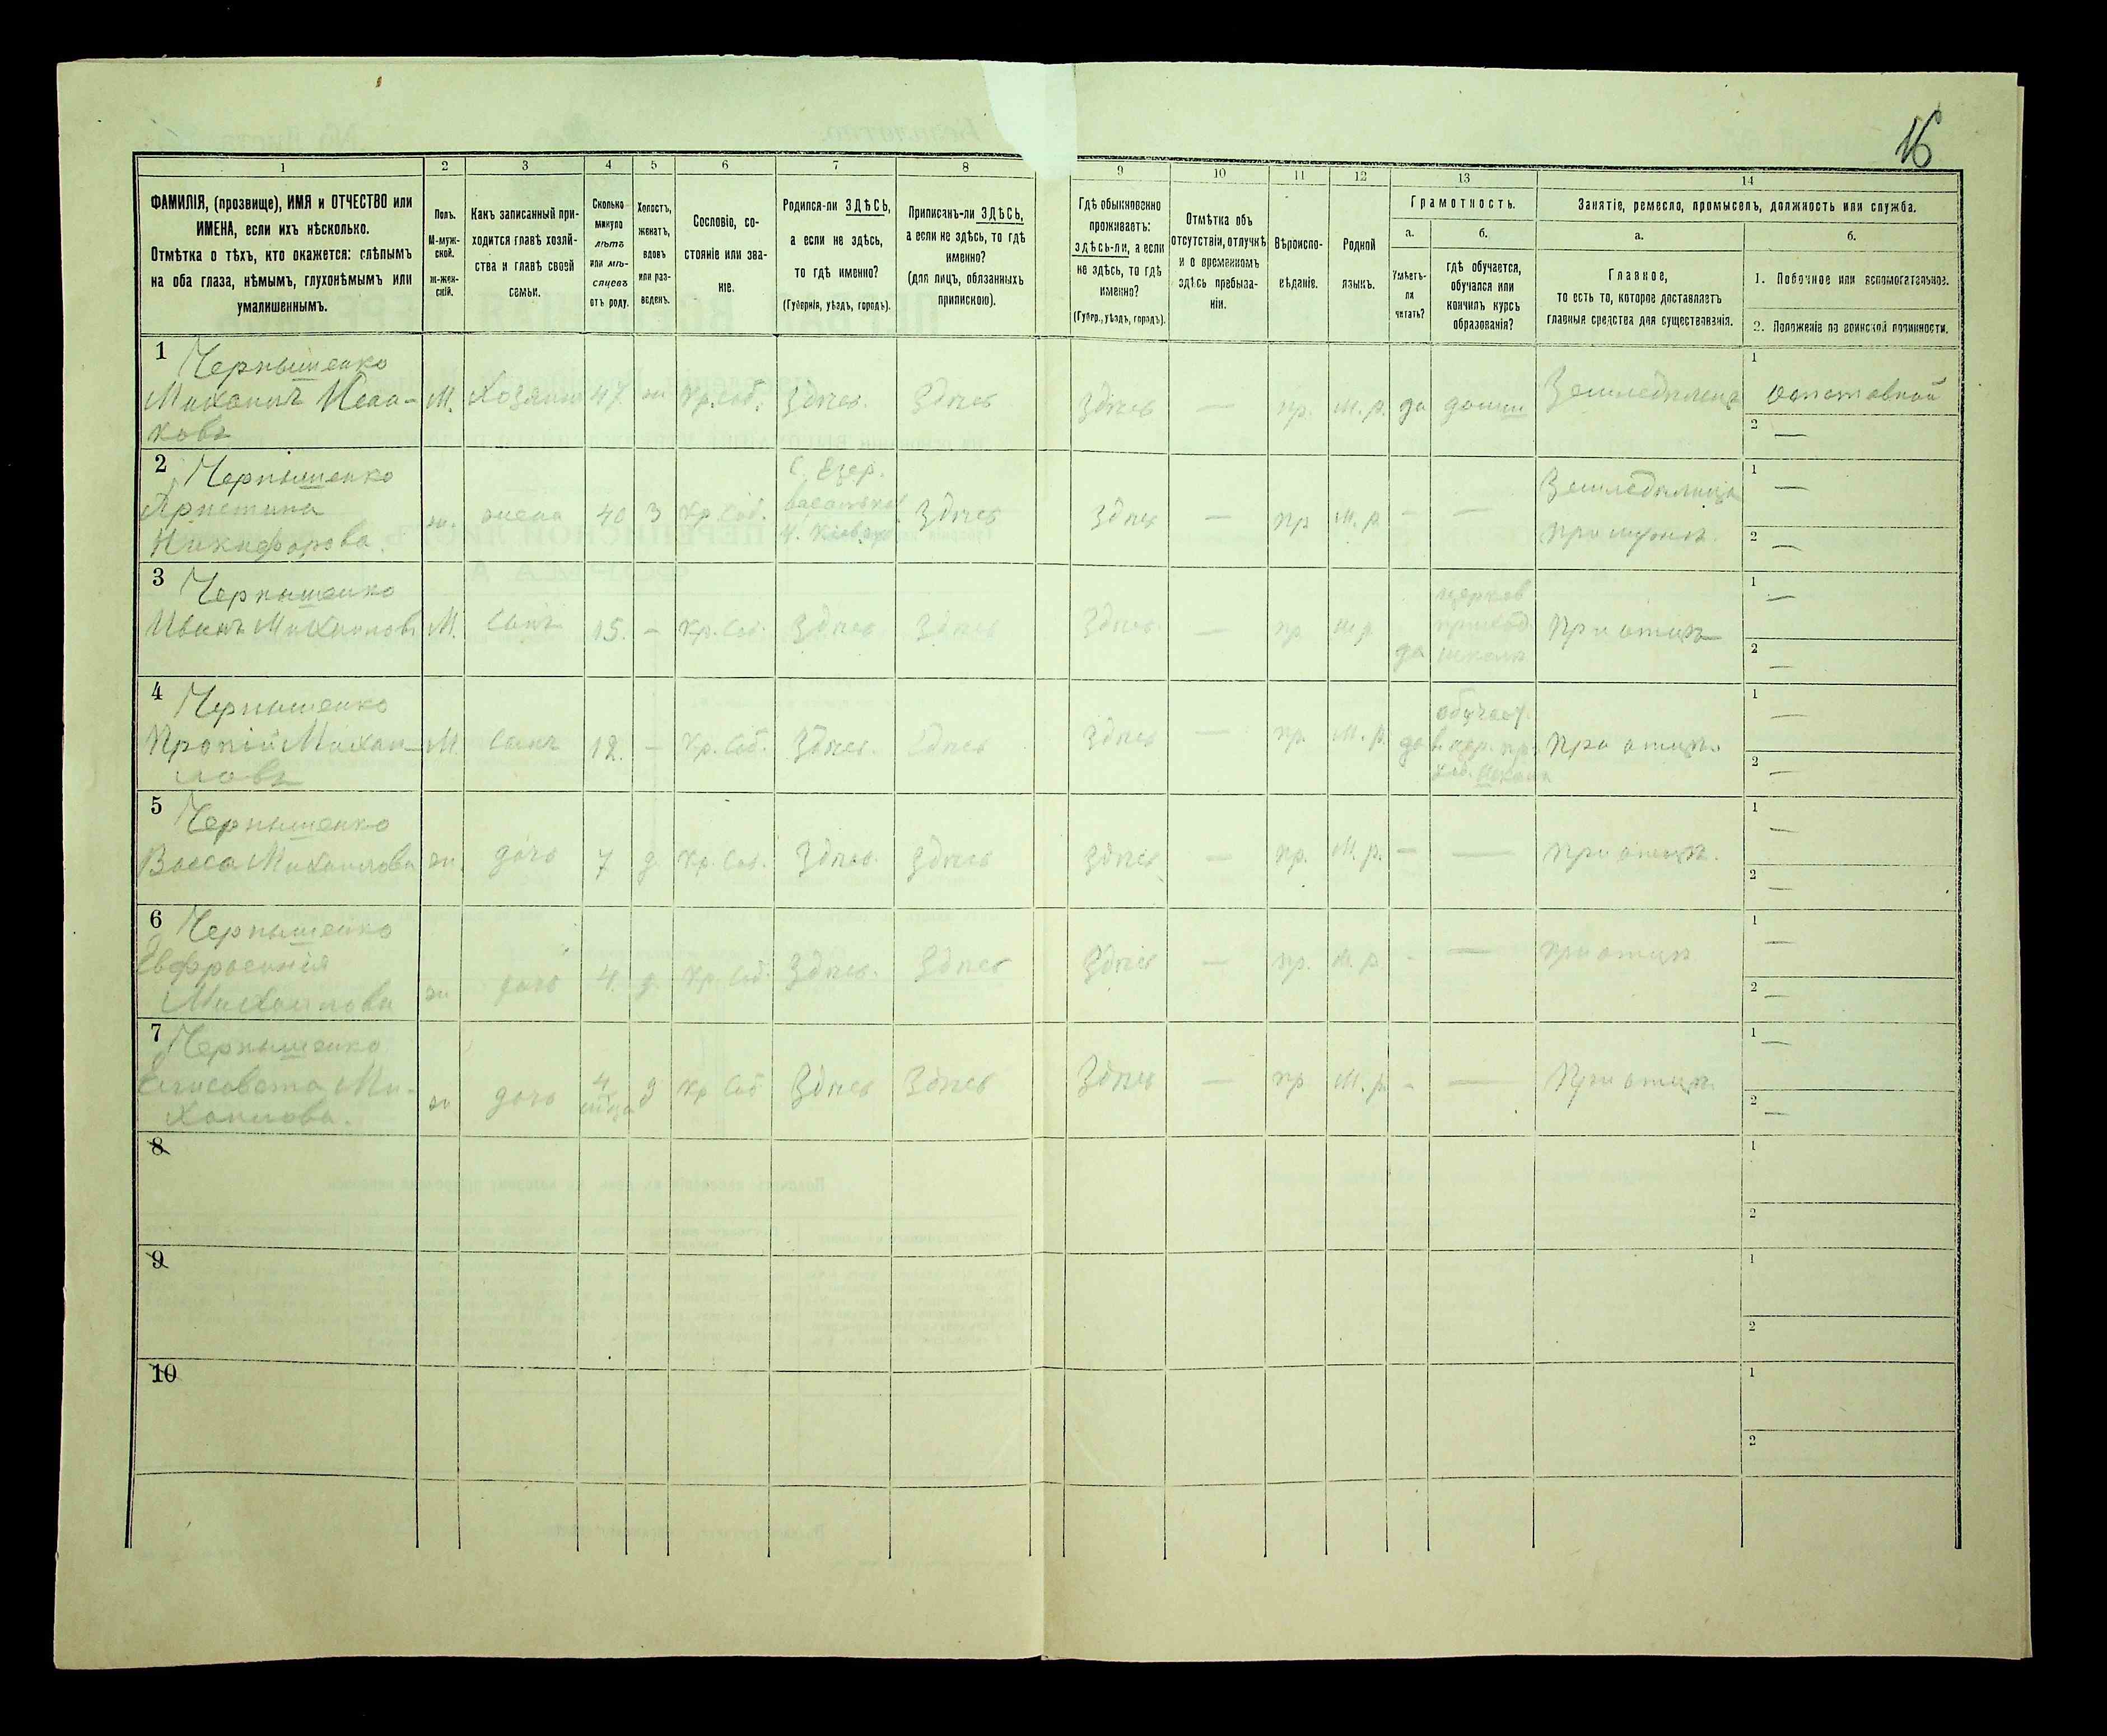 16
1
2
3
4
5
6
7
8
9
10
11
12
13
14
ФАМИЛІЯ, (прозвище), ИМЯ и ОТЧЕСТВО или
ИМЕНА, если ихъ нѣсколько.
Отмѣтка о тѣхъ, кто окажется: слѣпымъ
на оба глаза, нѣмымъ, глухонѣмымъ или
умалишеннымъ.
Полъ.
М-муж-
ской.
ж-жен-
скій.
Какъ записанный при-
ходится главѣ хозяй-
ства и главѣ своей
семьи.
Сколько
минуло
лѣтъ
или мѣ-
сяцевъ
отъ роду.
Холостъ,
женатъ,
вдовъ
или раз-
веденъ.
Сословіе, со-
стояніе или зва-
ніе.
Родился-ли ЗДѢСЬ,
а если не здѣсь,
то гдѣ именно?
(Губернія, уѣздъ, городъ).
Приписанъ-ли ЗДѢСЬ,
а если не здѣсь, то гдѣ
именно?
(для лицъ, обязанныхъ
припискою).
Гдѣ обыкновенно
проживаетъ:
здѣсь-ли, а если
не здѣсь, то гдѣ
именно?
(Губер., уѣздъ, городъ).
Отмѣтка объ
отсутствіи, отлучкѣ
и о временномъ
здѣсь пребыва-
ніи.
Вѣроиспо-
вѣданіе.
Родной
языкъ.
Грамотность.
а.
Умѣетъ-
ли
читать?
б.
гдѣ обучается,
обучался или
кончилъ курсъ
образованія?
Занятіе, ремесло, промыселъ, должность или служба.
а.
Главное,
то есть то, которое доставляетъ
главныя средства для существованія.
б.
1. Побочное или вспомогательное.
2. Положеніе по воинской повинности.
1
Чернышенко
Михаилъ Исаа-
ковъ
М. Хозяинъ 47 ж Кр. соб. Здѣсь Здѣсь Здѣсь — пр. м. р. да дома Земледѣлецъ
1
2 —
2
Чернышенко
Христина
Никифорова
ж. жена 40 з Кр. соб. Здѣсь Здѣсь — пр м. р. — — Земледѣлица
при мужѣ.
1 —
2 —
3
Чернышенко
Иванъ Михаиловъ
М. сынъ 15. — Кр. соб. Здѣсь Здѣсь Здѣсь — пр м р да
церков
приход.
школа
При отцѣ
1 —
2 —
4
Чернышенко
Михаи-
ловъ
М. сынъ 12. — Кр. соб. Здѣсь. Здѣсь Здѣсь — пр. м. р. да
обучает.
в цер. при-
ход. школѣ
При отцѣ
1 —
2 —
5
Чернышенко
Васса Михаилова
ж. дочь 7 д Кр. соб. Здѣсь. Здѣсь Здѣсь — пр. м. р. — — При отцѣ.
1 —
2 —
6
Чернышенко
Евфросинія
Михаилова
ж дочь 4. д. Кр. соб. Здѣсь. Здѣсь Здѣсь — пр. м. р - — При отцѣ
1 —
2 —
7
Чернышенко
Елисавета Ми-
хаилова.
ж дочь 4 мѣсяца д Кр соб Здѣсь Здѣсь Здѣсь — пр м. р. - — При отцѣ.
1 —
2 —
8
1
2
9
1
2
10
1
2